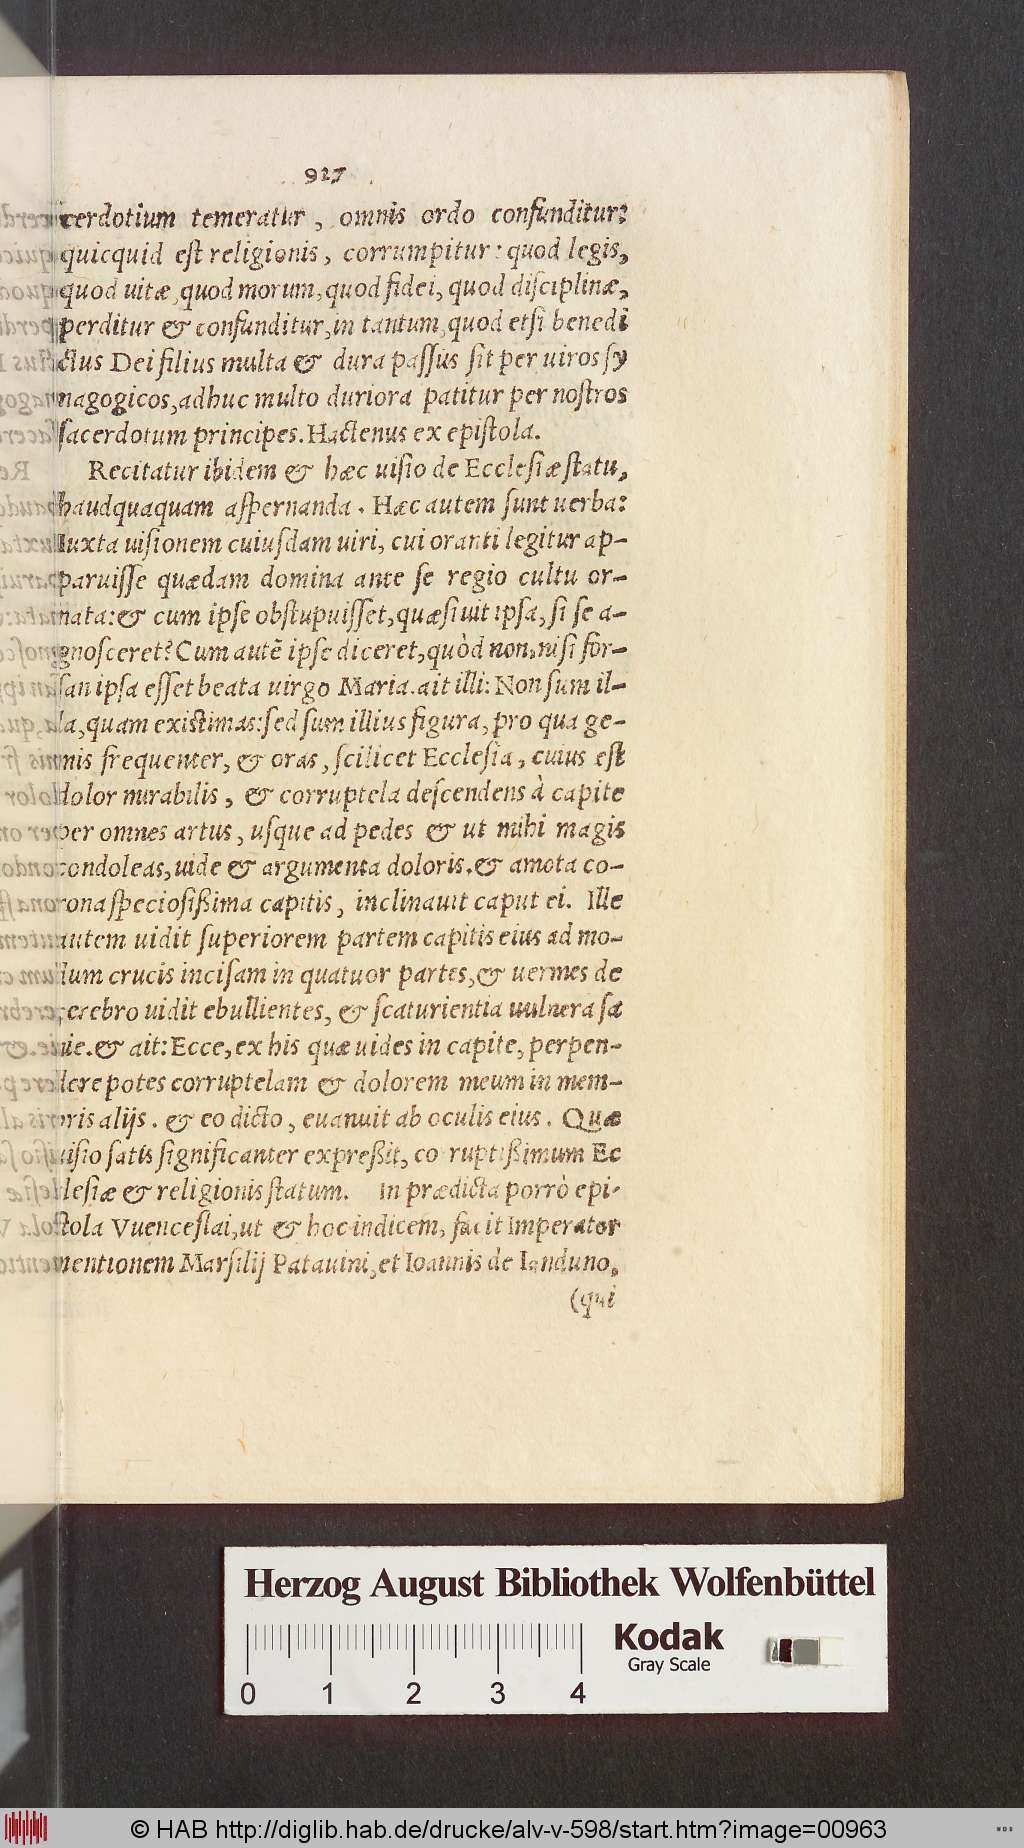 927
cerdotium temeratur, omnis ordo confunditur:
quicquid est religionis, corrumpitur: quod legis,
quod uitæ, quod morum, quod fidei, quod disciplinæ,
perditur & confunditur, in tantum, quod etsi benedi
ctus Dei filius multa & dura passus sit per uiros sy
nagogicos, adhuc multo duriora patitur per nostros
sacerdotum principes. Hactenus ex epistola.
Recitatur ibidem & hæc uisio de Ecclesiæ statu,
haudquaquam aspernanda. Hæc autem sunt uerba:
Iuxta uisionem cuiusdam uiri, cui oranti legitur ap-
paruisse quædam domina ante se regio cultu or-
nata: & cum ipse obstupuisset, quæsiuit ipsa, si se a-
gnosceret? Cum autē ipse diceret, quòd non, nisi for-
san ipsa esset beata uirgo Maria. ait illi: Non sum il-
la, quam existimas: sed sum illius figura, pro qua ge-
mis frequenter, & oras, scilicet Ecclesia, cuius est
dolor mirabilis, & corruptela descendens à capite
per omnes artus, usque ad pedes & ut mihi magis
condoleas, uide & argumenta doloris. & amota co-
rona speciosißima capitis, inclinauit caput ei. Ille
autem uidit superiorem partem capitis eius ad mo-
dum crucis incisam in quatuor partes, & uermes de
cerebro uidit ebullientes, & scaturientia uulnera sa
nie. & ait: Ecce, ex his quæ uides in capite, perpen-
dere potes corruptelam & dolorem meum in mem-
bris alijs. & eo dicto, euanuit ab oculis eius. Quæ
uisio satis significanter expreßit, co ruptißimum Ec
clesiæ & religionis statum. In prædicta porrò epi-
stola Vuenceslai, ut & hoc indicem, facit Imperator
mentionem Marsilij Patauini, et Ioannis de Ianduno,
(qui
Herzog August Bibliothek Wolfenbüttel
0 1 2 3 4
Kodak
Gray Scale
© HAB http://diglib.hab.de/drucke/alv-v-598/start.htm?image=00963